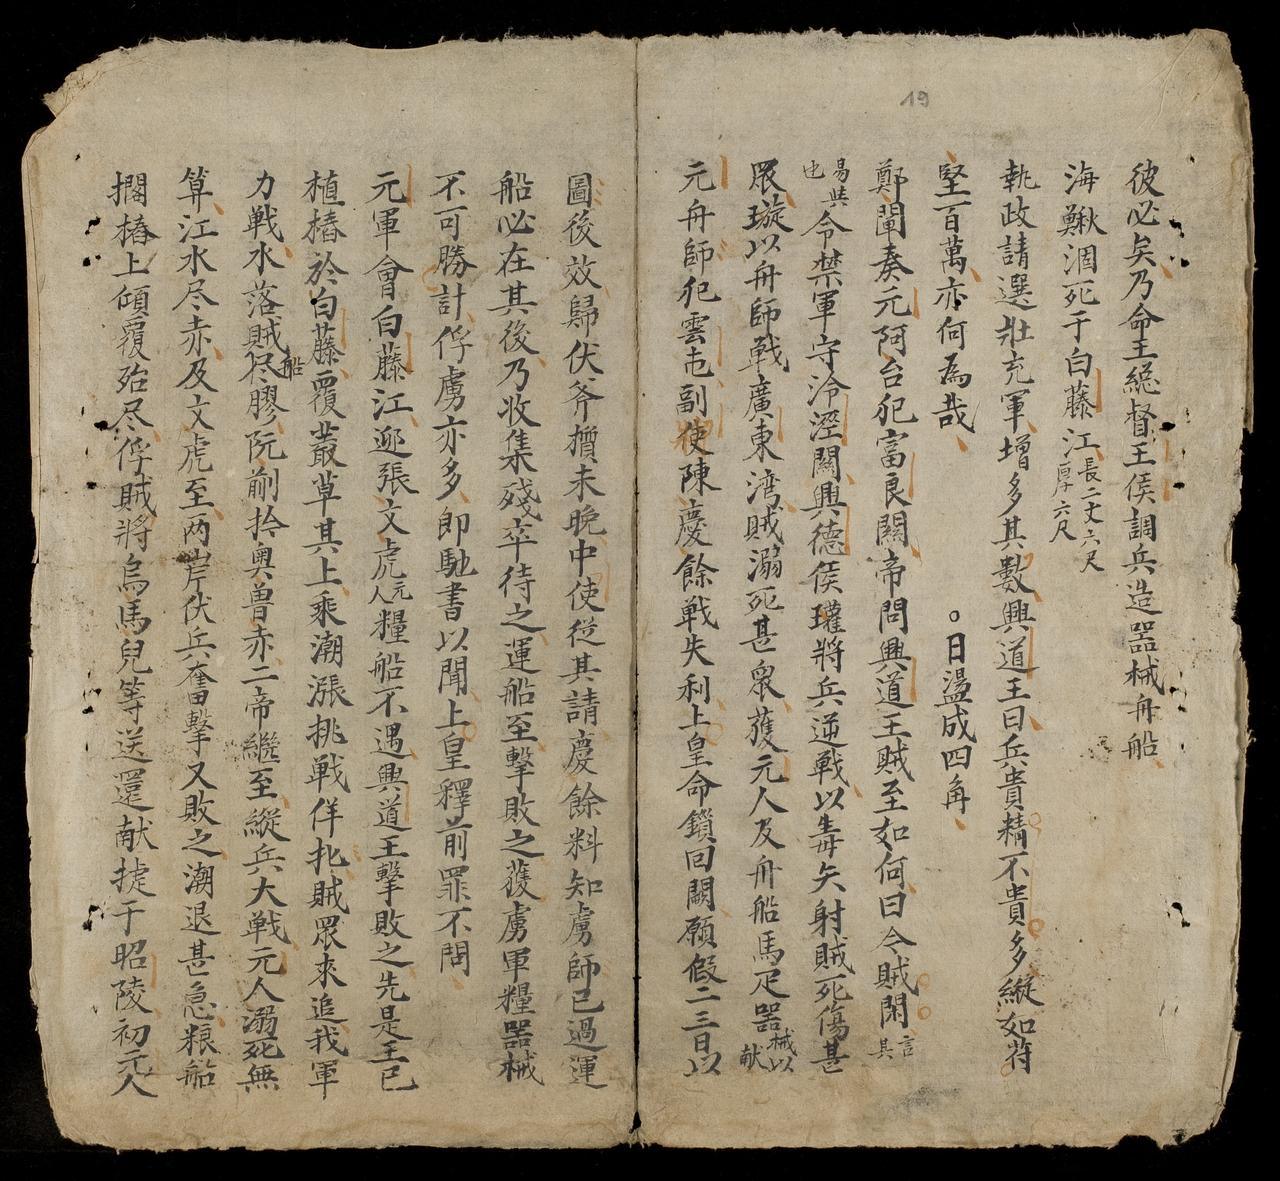 19
彼必矣乃命王緫督王侯調兵造器械舟船
海鰍涸死于白藤江長二丈六尺厚六尺
執政請選壮充軍增多其數興道王曰兵貴精不貴多縱如苻
堅百萬亦何為哉 。日盪成四角
鄭闡奏元阿台犯富良關帝問興道王賊至如何曰今賊閑言其
易與也令禁軍守泠涇關興德侯瓘將兵逆戰以毒矢射賊死傷甚
眾璇以舟師戰廣東湾賊溺死甚眾獲元人及舟船馬疋器械以献
元舟師犯雲屯副使陳慶餘戰失利上皇命鎖回闕願假二三日以
圖後效歸伏斧攢未晚中使従其請慶餘料知虜師已過運
船必在其後乃收集殘卒待之運船至擊敗之獲虜軍糧器械
不可勝計俘虜亦多即馳書以聞上皇釋前罪不問
元軍會白藤江迎張文虎元人糧船不遇興道王擊敗之先是王已
植樁於白藤覆叢草其上乘潮漲挑戰佯北賊眾來追我軍
力戦水落賊船尽膠阮蒯拎奥魯赤二帝繼至縱兵大戦元人溺死無
算江水尽赤及文虎至两岸伏兵奮擊又敗之潮退甚急粮船
擱樁上傾覆殆尽俘賊將烏馬兒等送還献捷于昭陵初元人